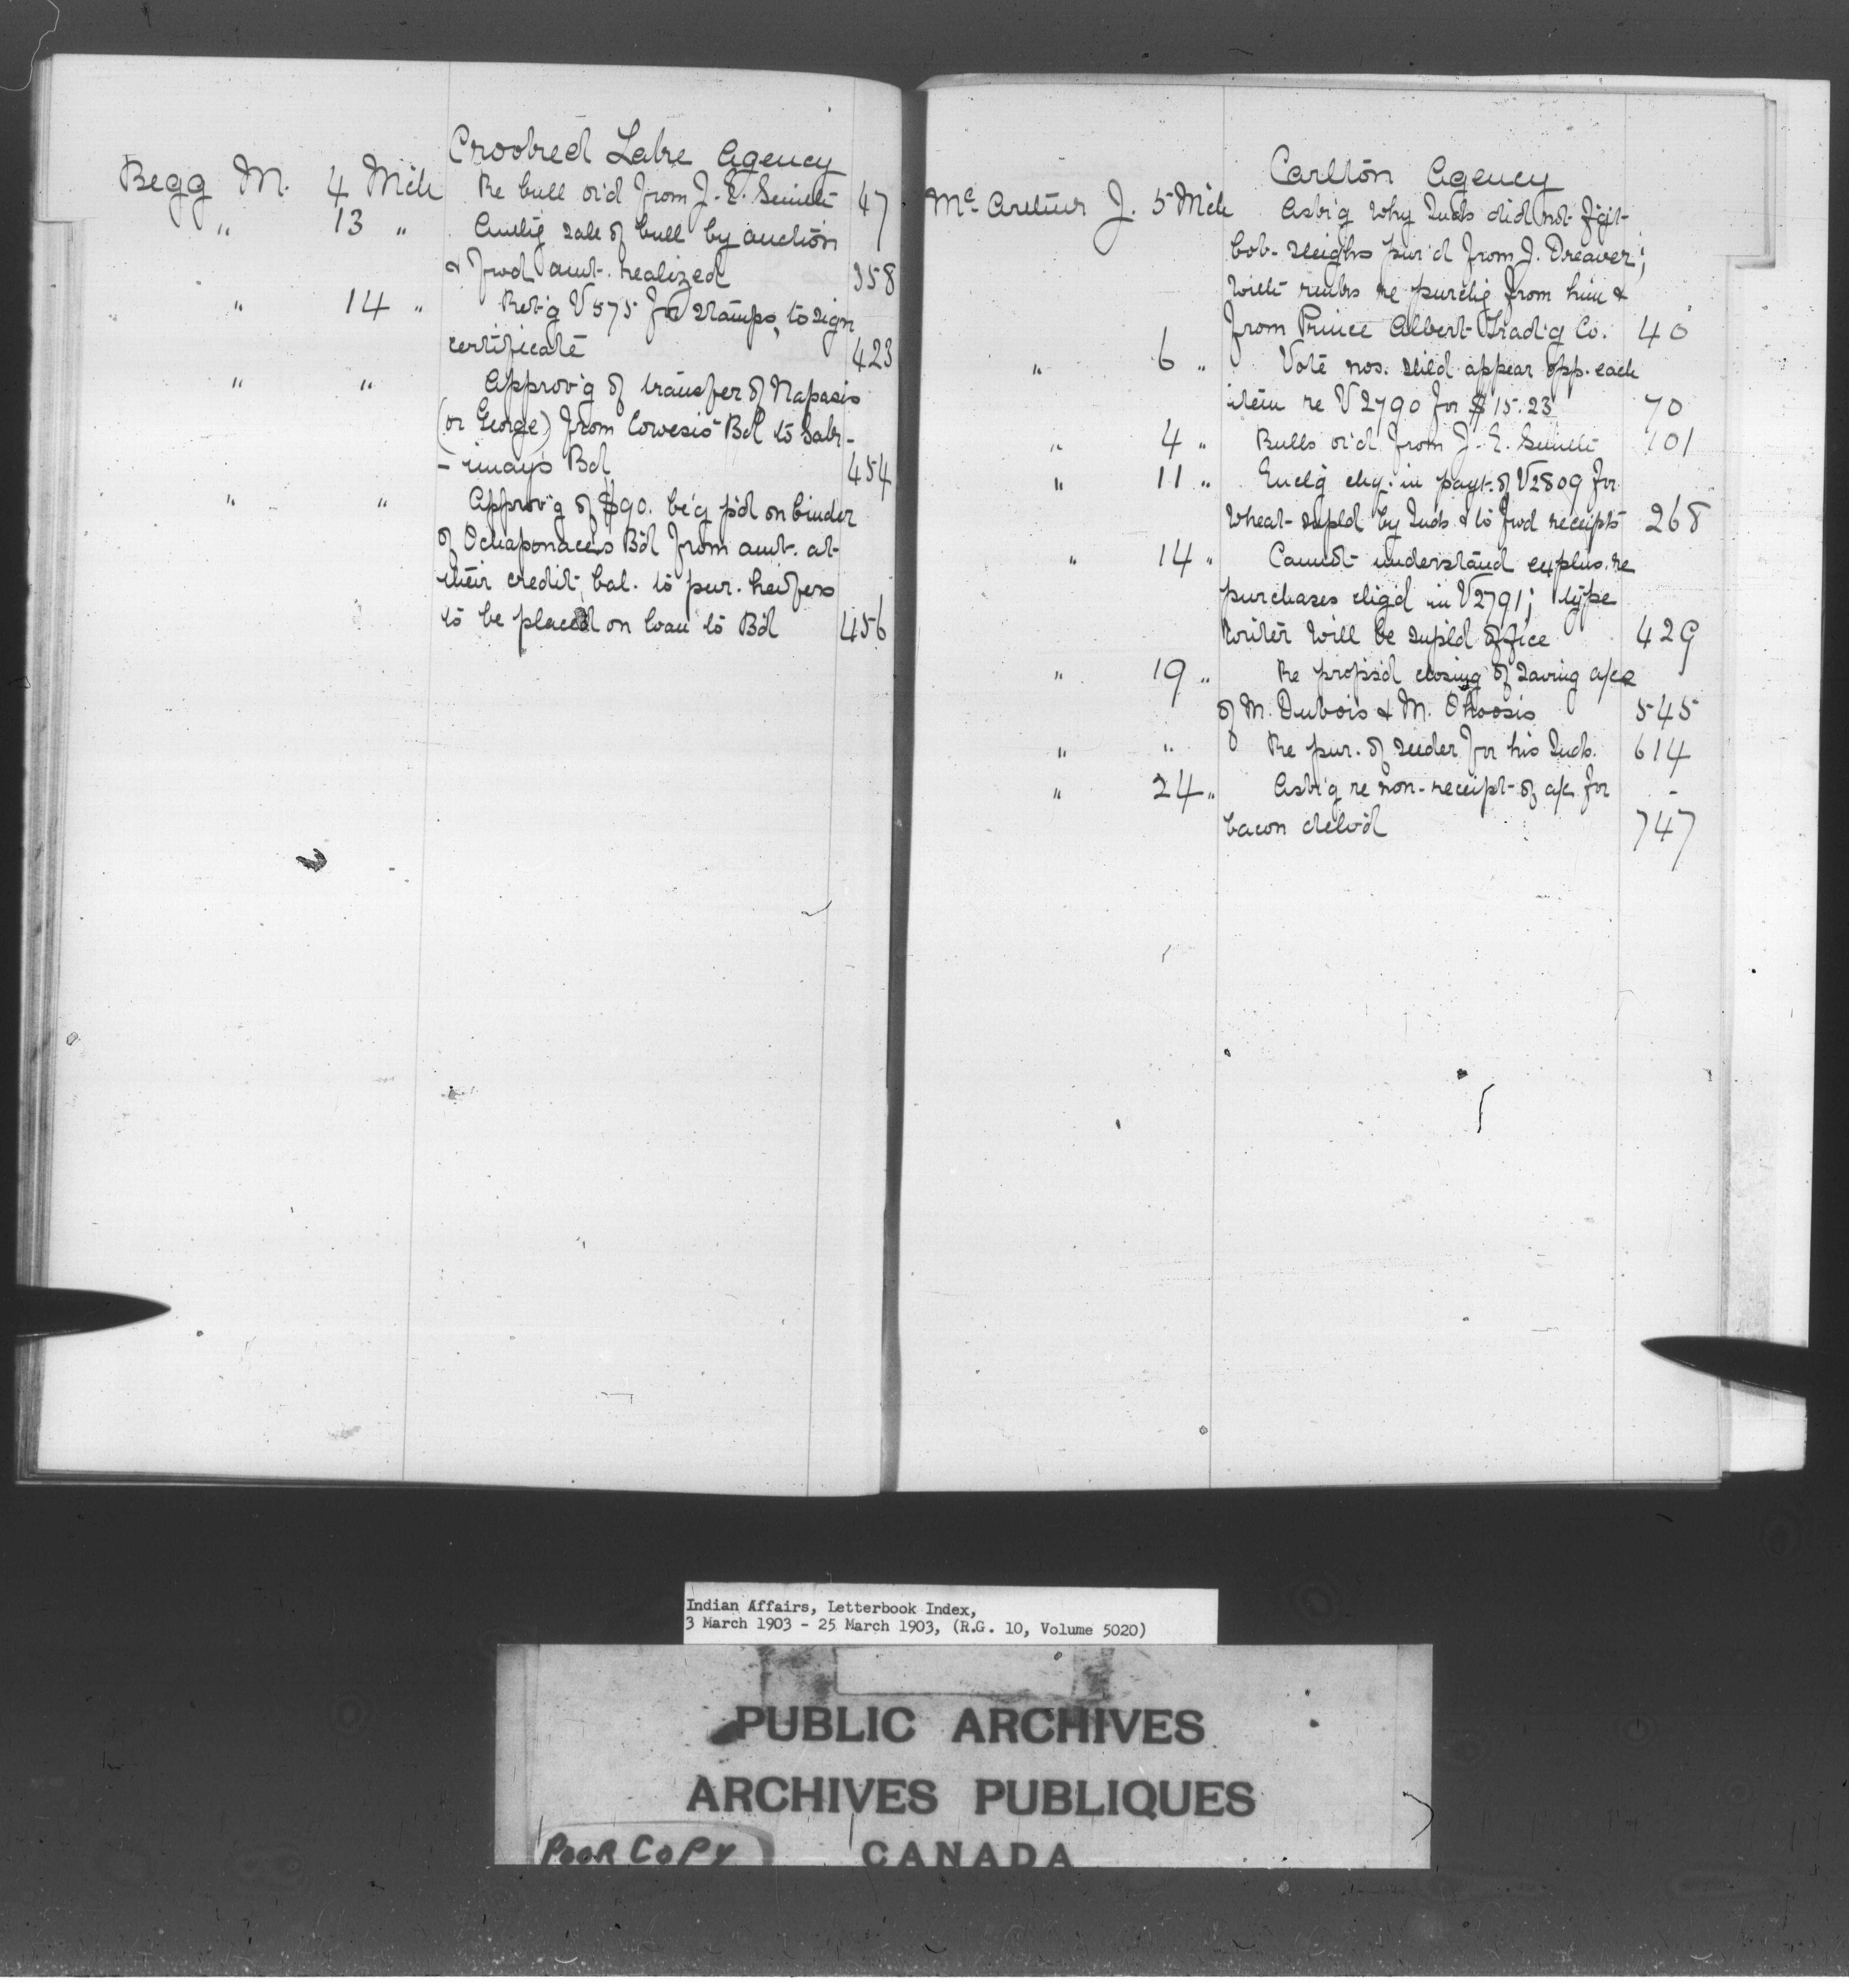 Crooked Lake Agency
Begg M. 4 Mch Re bull o'd from J. E. Smith 47
" 13 " Authg sale of bull by auction
& fwd amt. realized 358
" 14 " Ret'g V575 for stamps, to sign
certificate 423
" " Approv'g of transfer of Napasis
(or George) from Cowesis Bd to Sak-
-imay's Bd 454
" " Approv'g of $90. be'g p'd on binder
of Ochaponace's Bd from amt. at
their credit, bal. to pur. heifers
to be placed on loan to Bd 456
Carlton Agency
McArthur J. 5 Mch Ask'g why Inds did not g't
bob-sleighs pur'd from J. Dreaver;
with rmks re purchg from him &
from Prince Albert Trad'g Co. 40
" 6 " Vote nos. shld appear opp. each
item re V2790 for $15.23 70
" 4 " Bulls o'd from J. E. Smith 101
" 11 " Encl'g chq. in payt. of V2809 for
wheat supld by Inds. & to fwd receipts 268
" 14 " Cannot understand explns. re
purchases chgd in V2791; type
writer will be supld office 429
" 19 " Re propsd closing of saving a/cs
of M. Dubois & M. Ohoosis 545
" " Re pur. of seeder for his Inds. 614
" 24 " Ask'g re non-receipt of a/c for -
bacon delvd 747
Indian Affairs, Letterbook Index,
3 March 1903 - 25 March 1903, (R.G. 10, Volume 5020)
PUBLIC ARCHIVES
ARCHIVES PUBLIQUES
POOR COPY CANADA